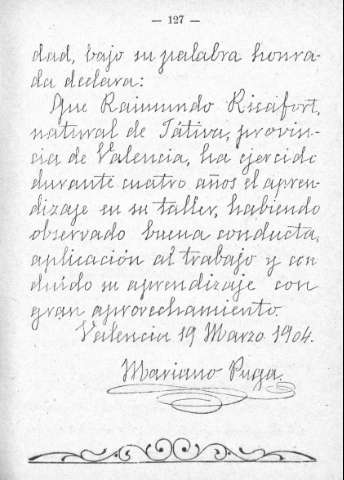 — 127 —
dad, bajo su palabra honra-
da declara:
Que Raimundo Ricafort,
natural de Játiva, provin-
cia de Valencia, ha ejercido
durante cuatro años el apren-
dizaje en su taller, habiendo
observado buena conducta,
aplicación al trabajo y con
cluido su aprendizaje con
gran aprovechamiento.
Valencia 19 Marzo 1904.
Mariano Puga.